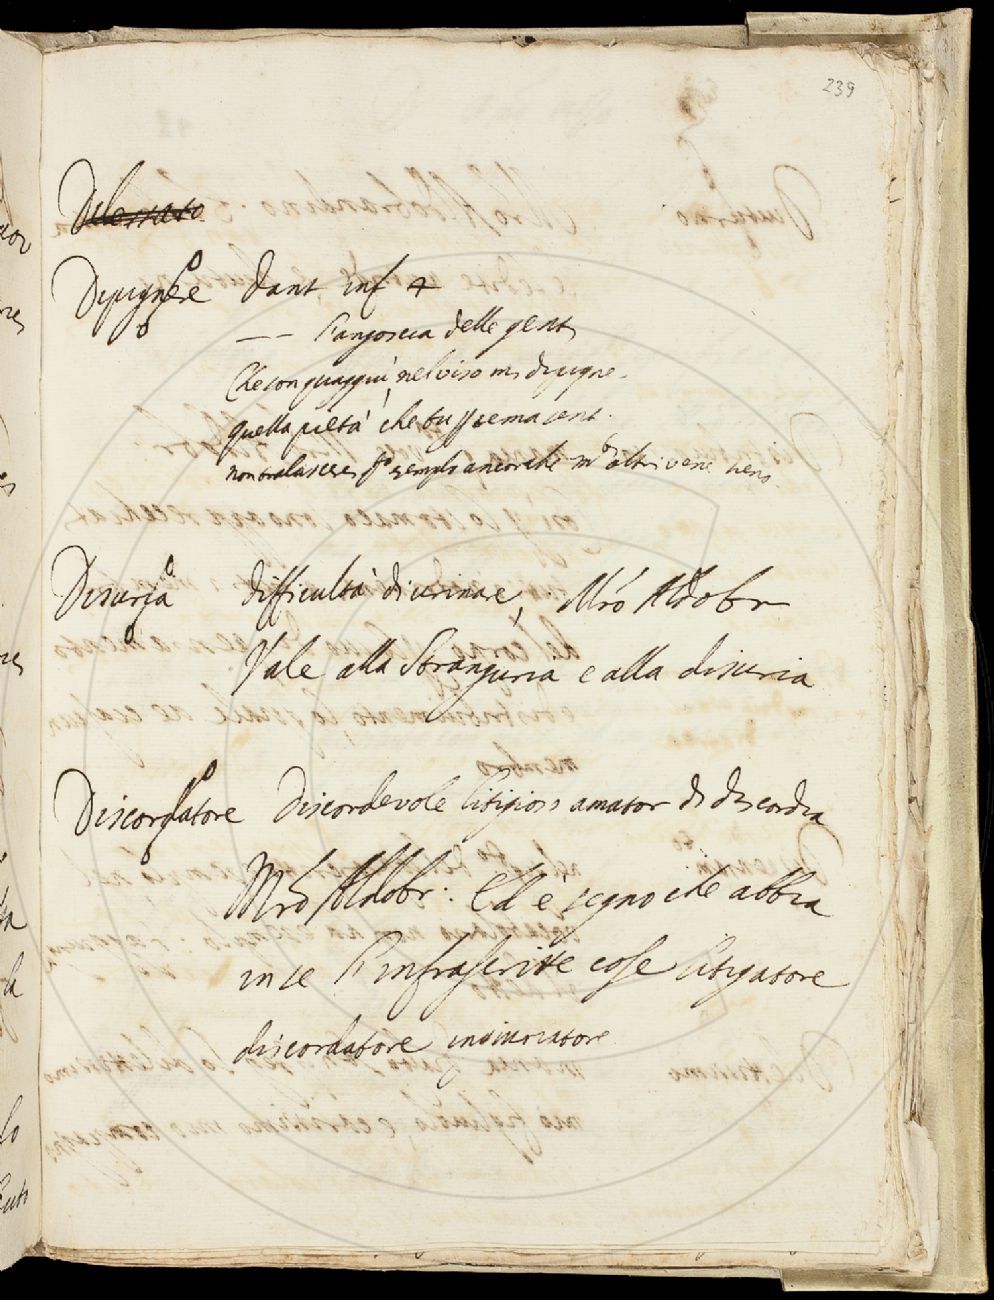 239
Dipignere Dant inf 4
L'angoscia delle genti
Che son quaggiù nel viso mi dipigne
quella pietà che tu per tema senti.
Disuria difficultà di urinare, Mro Aldobr
Vale alla stranguria e alla disuria
Discordatore Discordevole litigioso amator di discordia
Mro Aldobr. Ed è segno che abbia
in se l'infrascritte cose litigatore
discordatore ingiuriatore